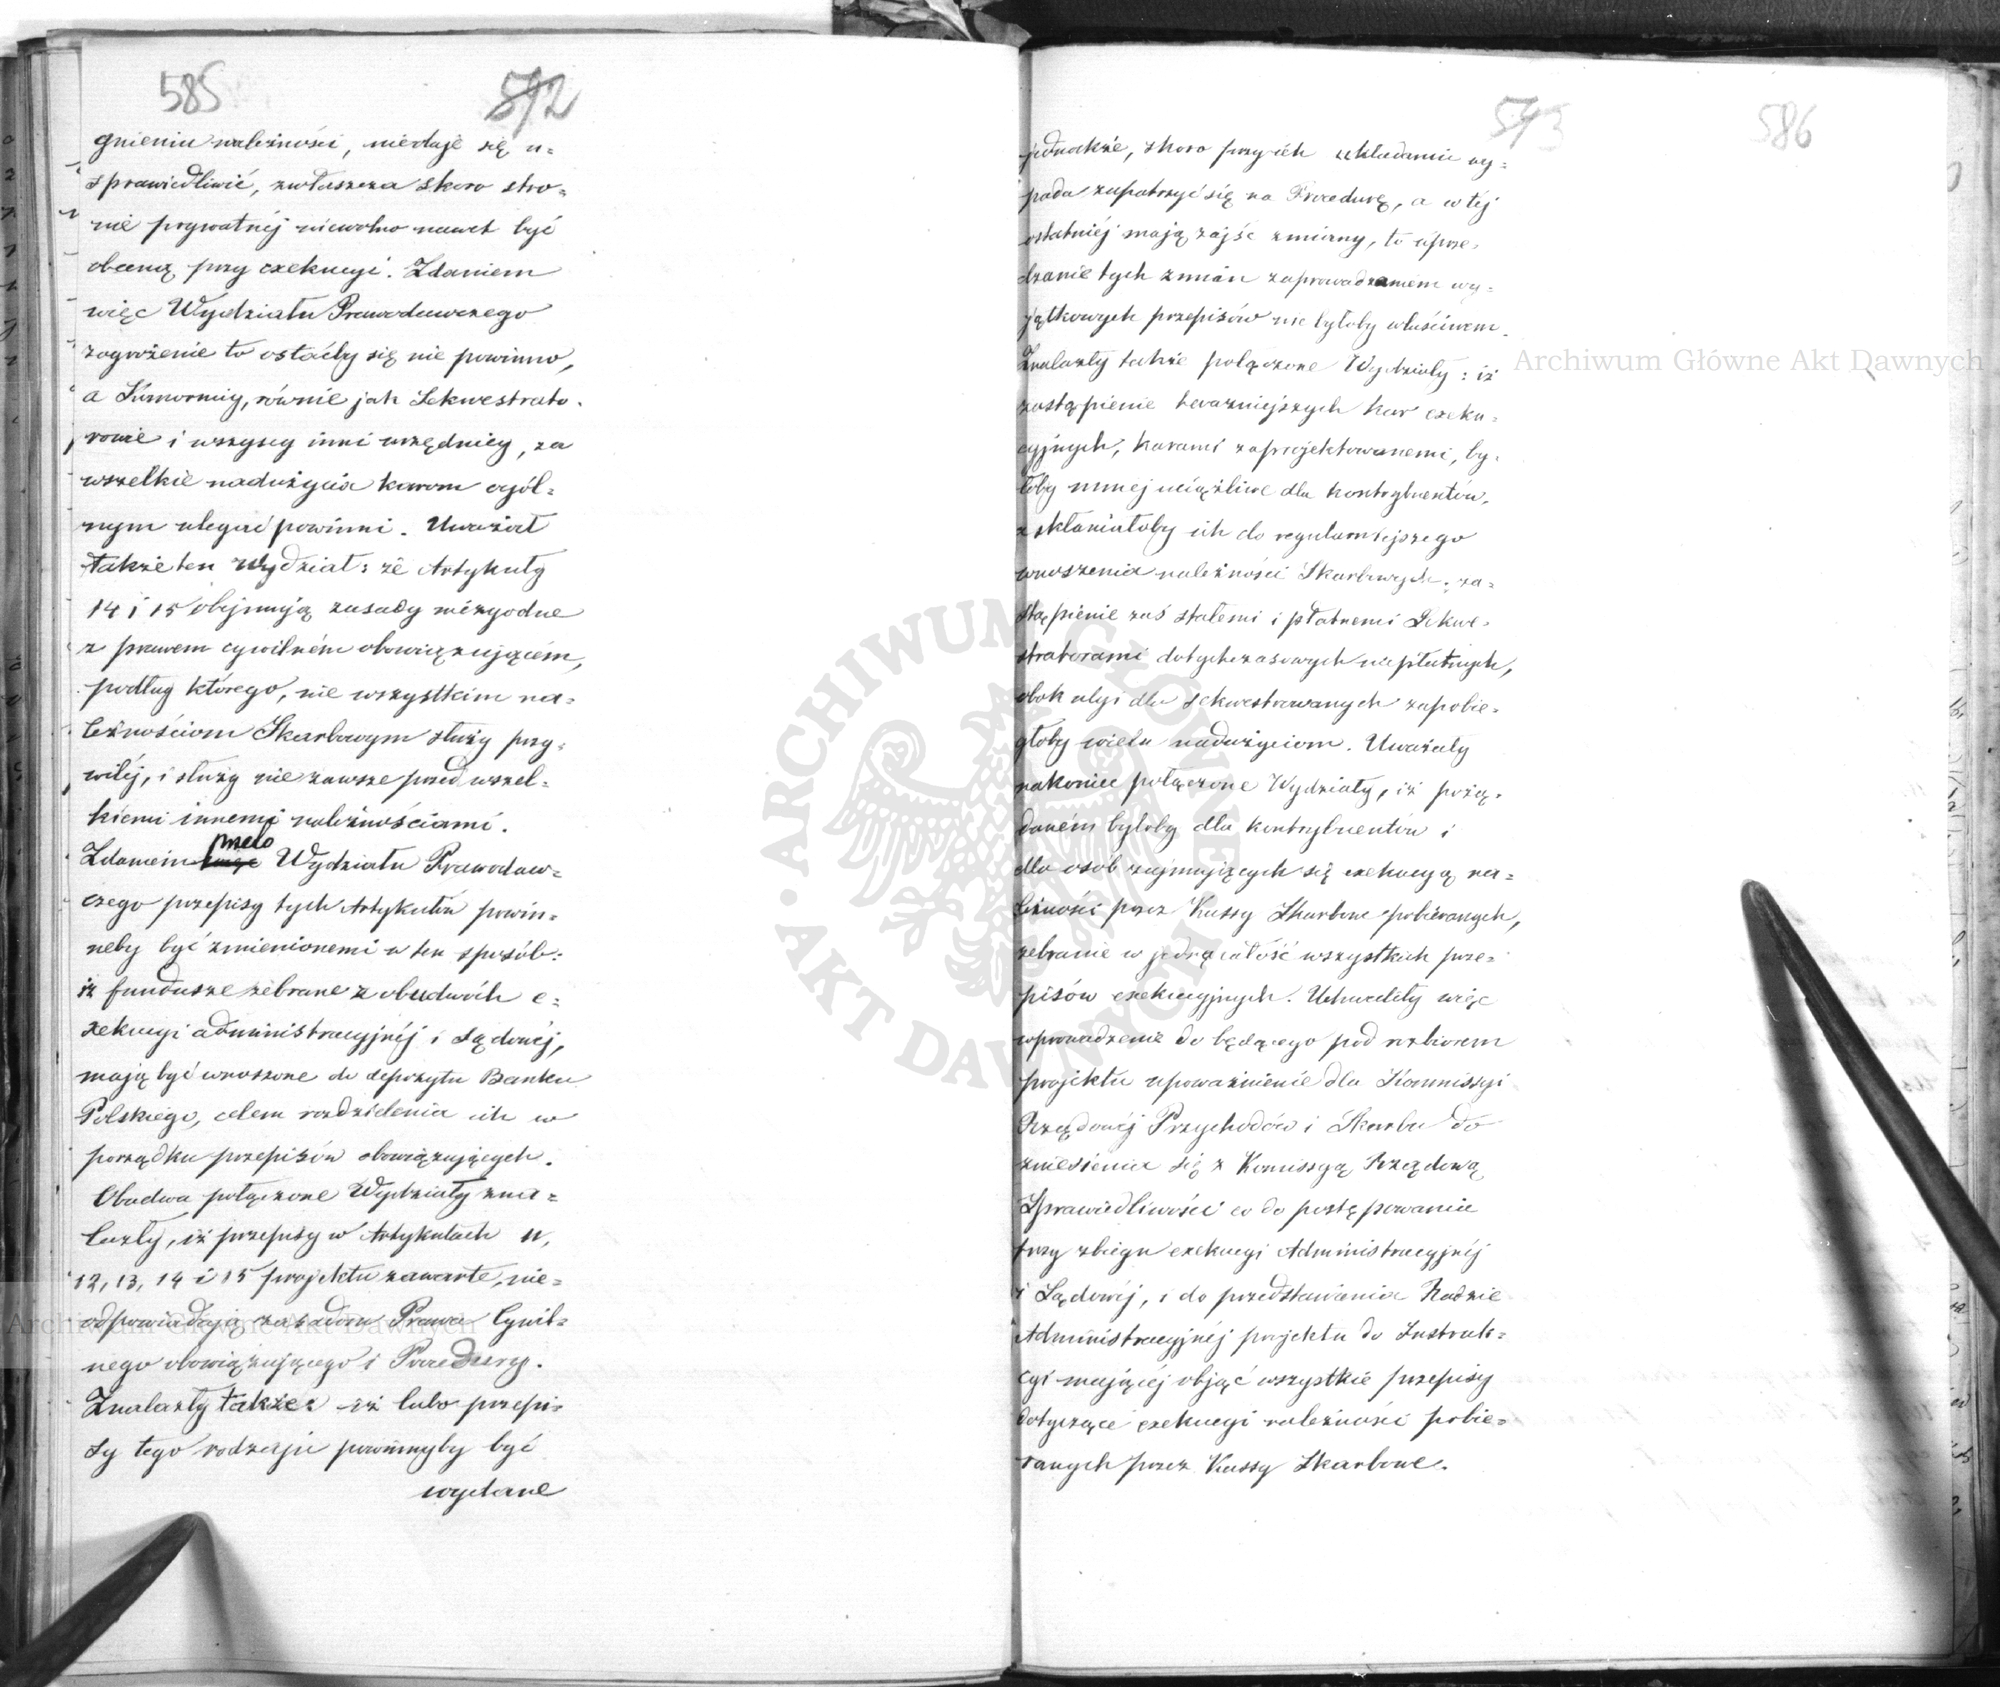 585 572
gnieniu należności, niedaje się u=
sprawiedliwić, zwłaszcza skoro stro=
nie prywatnéj niewolno nawet być
obecną przy exekucyi. Zdaniem
więc Wydziału Prawodawczego
zagrożenie to ostaćby się nie powinno,
a Komornicy, równie jak Sekwestrato=
rowie i wszyscy inni urzędnicy, za
wszelkie nadużycia karom ogól=
nym ulegać powinni. Uważał
także ten Wydział: że Artykuły
14 i 15 obejmują zasady niezgodne
z prawem cywilném obowiązującém,
podług którego, nie wszystkim na=
leżnościom Skarbowym służy przy=
wiléj, i służy nie zawsze przed wszel=
kiemi innemi należnościami.
Zdaniem Wydziału Prawodaw=
czego przepisy tych Artykułów powin=
neby być zmienionemi w ten sposób:
iż fundusze zebrane z obudwóch e=
xekucyi administracyjnéj i Sądowéj,
mają być wnoszone do depozytu Banku
Polskiego, celem rozdzielenia ich w
porządku przepisów obowiązujących.
Obadwa połączone Wydziały zna=
lazły, iż przepisy w Artykułach 11,
12, 13, 14 i 15 projektu zawarte, nie=
odpowiadają zasadom Prawa Cywil=
nego obowiązującego i Procedury.
Znalazły także: iż lubo przepi=
sy tego rodzaju powinnyby być
wydane
573 586
jednakże, skoro przy ich układaniu wy=
pada zapatrzyć się na Procedurę, a w téj
ostatniéj mają zajść zmiany, to uprze=
dzanie tych zmian zaprowadzeniem wy=
jątkowych przepisów nie byłoby właściwem.
Znalazły także połączone Wydziały: iż
zastąpienie teraźniejszych kar exeku=
cyjnych, karami zaprojektowanemi, by=
łoby mniej uciążliwe dla kontrybuentów,
a skłaniałoby ich do regularniejszego
wnoszenia należności Skarbowych; za=
stąpienie zaś stałemi i płatnemi Sekwe=
stratorami dotychczasowych niepłatnych,
obok ulgi dla sekwestrowanych zapobie=
głoby wielu nadużyciom. Uważały
nakoniec połączone Wydziały, iż pożą=
daném byłoby dla kontrybuentów i
dla osób zajmujących się exekucyą na=
leżności przez Kassy Skarbowe pobieranych,
zebranie w jedną całość wszystkich prze=
pisów exekucyjnych. Uchwaliły więc
wprowadzenie do będącego pod rozbiorem
projektu upoważnienie dla Kommissyi
Rządowéj Przychodów i Skarbu do
zniesienia się z Komissyą Rządową
Sprawiedliwości co do postępowania
przy zbiegu exekucyi Administracyjnéj
i Sądowéj, i do przedstawienia Radzie
Administracyjnéj projektu do Instruk=
cyi mającéj objąć wszystkie przepisy
dotyczące exekucyi należności pobie=
ranych przez Kassy Skarbowe.
Archiwum Główne Akt Dawnych
Archiwum Główne Akt Dawnych
ARCHIWUM GŁÓWNE · AKT DAWNYCH